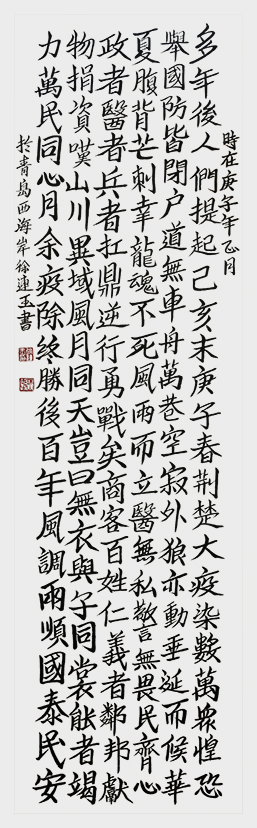 時在庚子年乙月
多年後人們提起己亥末庚午春荆楚大疫染數萬眾惶恐
舉國防皆閉户道無車舟萬巷空寂外狼亦動垂延而候華
夏腹背芒刺幸龍魂不死風雨而立醫無私警無畏民齊心
政者醫者兵者扛鼎逆行勇戰矣商客百姓仁義者鄰邦獻
物捐資嘆山川異域風月同天豈曰無衣與子同裳能者竭
力萬民同心月余疫除終勝後百年風調雨順國泰民安
於青島西海岸徐連玉書